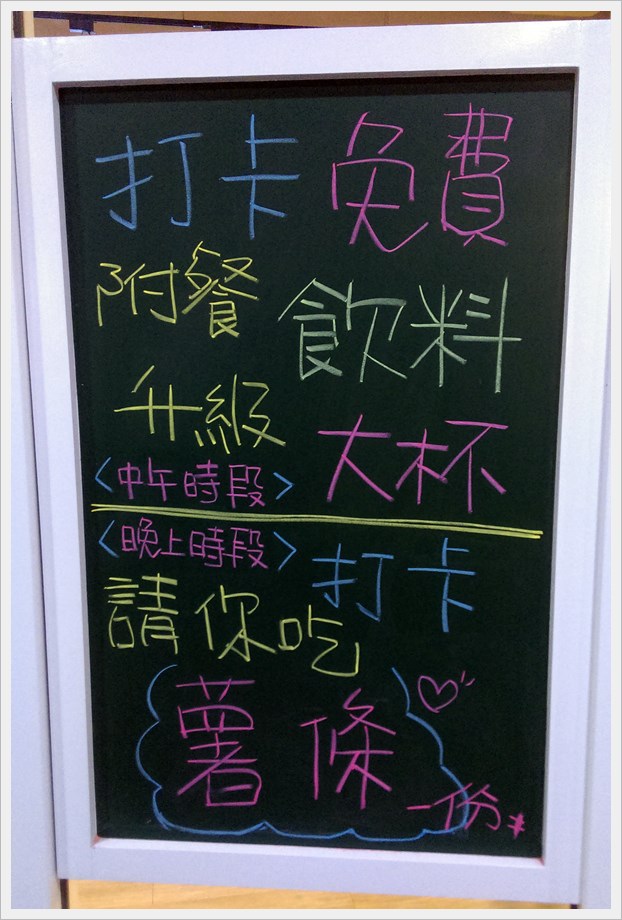 打卡 免費
附餐 飲料
升級 大杯
<中午時段>
<晚上時段>
打卡
請你吃
薯條
一份